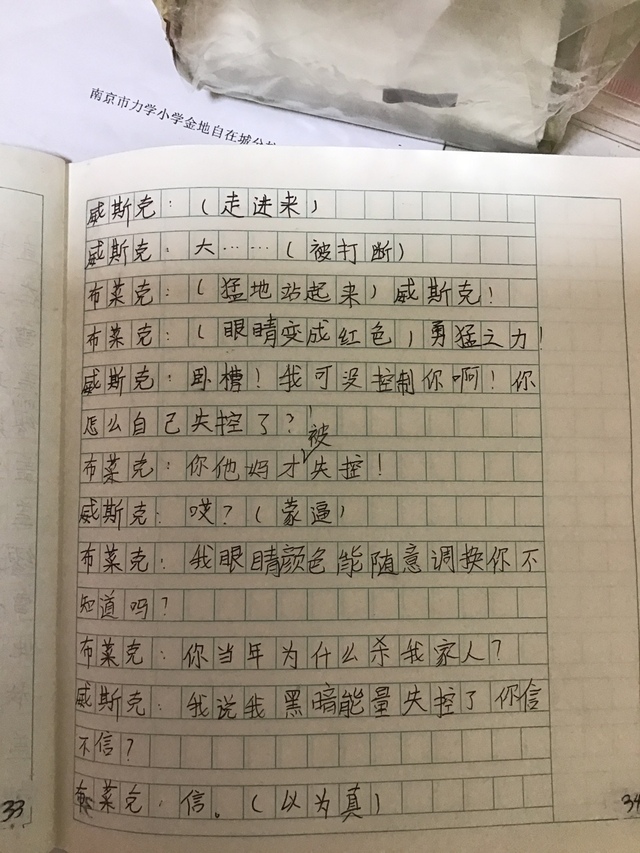 南京市力学小学金地自在城分校
威斯克：（走进来）
威斯克：大……（被打断）
布莱克：（猛地站起来）威斯克！
布莱克：（眼睛变成红色）勇猛之力！
威斯克：卧槽！我可没控制你啊！你
怎么自己失控了？！
被
布莱克：你他妈才失控！
威斯克：哎？（蒙逼）
布莱克：我眼睛颜色能随意调换你不
知道吗？
布莱克：你当年为什么杀我家人？
威斯克：我说我黑暗能量失控了你信
不信？
布莱克：信。（以为真）
33
34